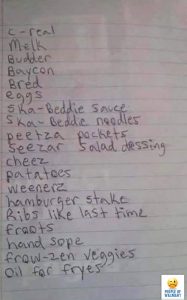 C-real
Melk
Budder
Baycon
Bred
eggs
Ska-Beddie sauce
Ska-Beddie noodles
peetza pockets
Seezar salad dessing
cheez
patatoes
weenerz
hamburger stake
Ribs like last time
froots
hand sope
frow-zen veggies
Oil for fryes
PEOPLE OF WALMART